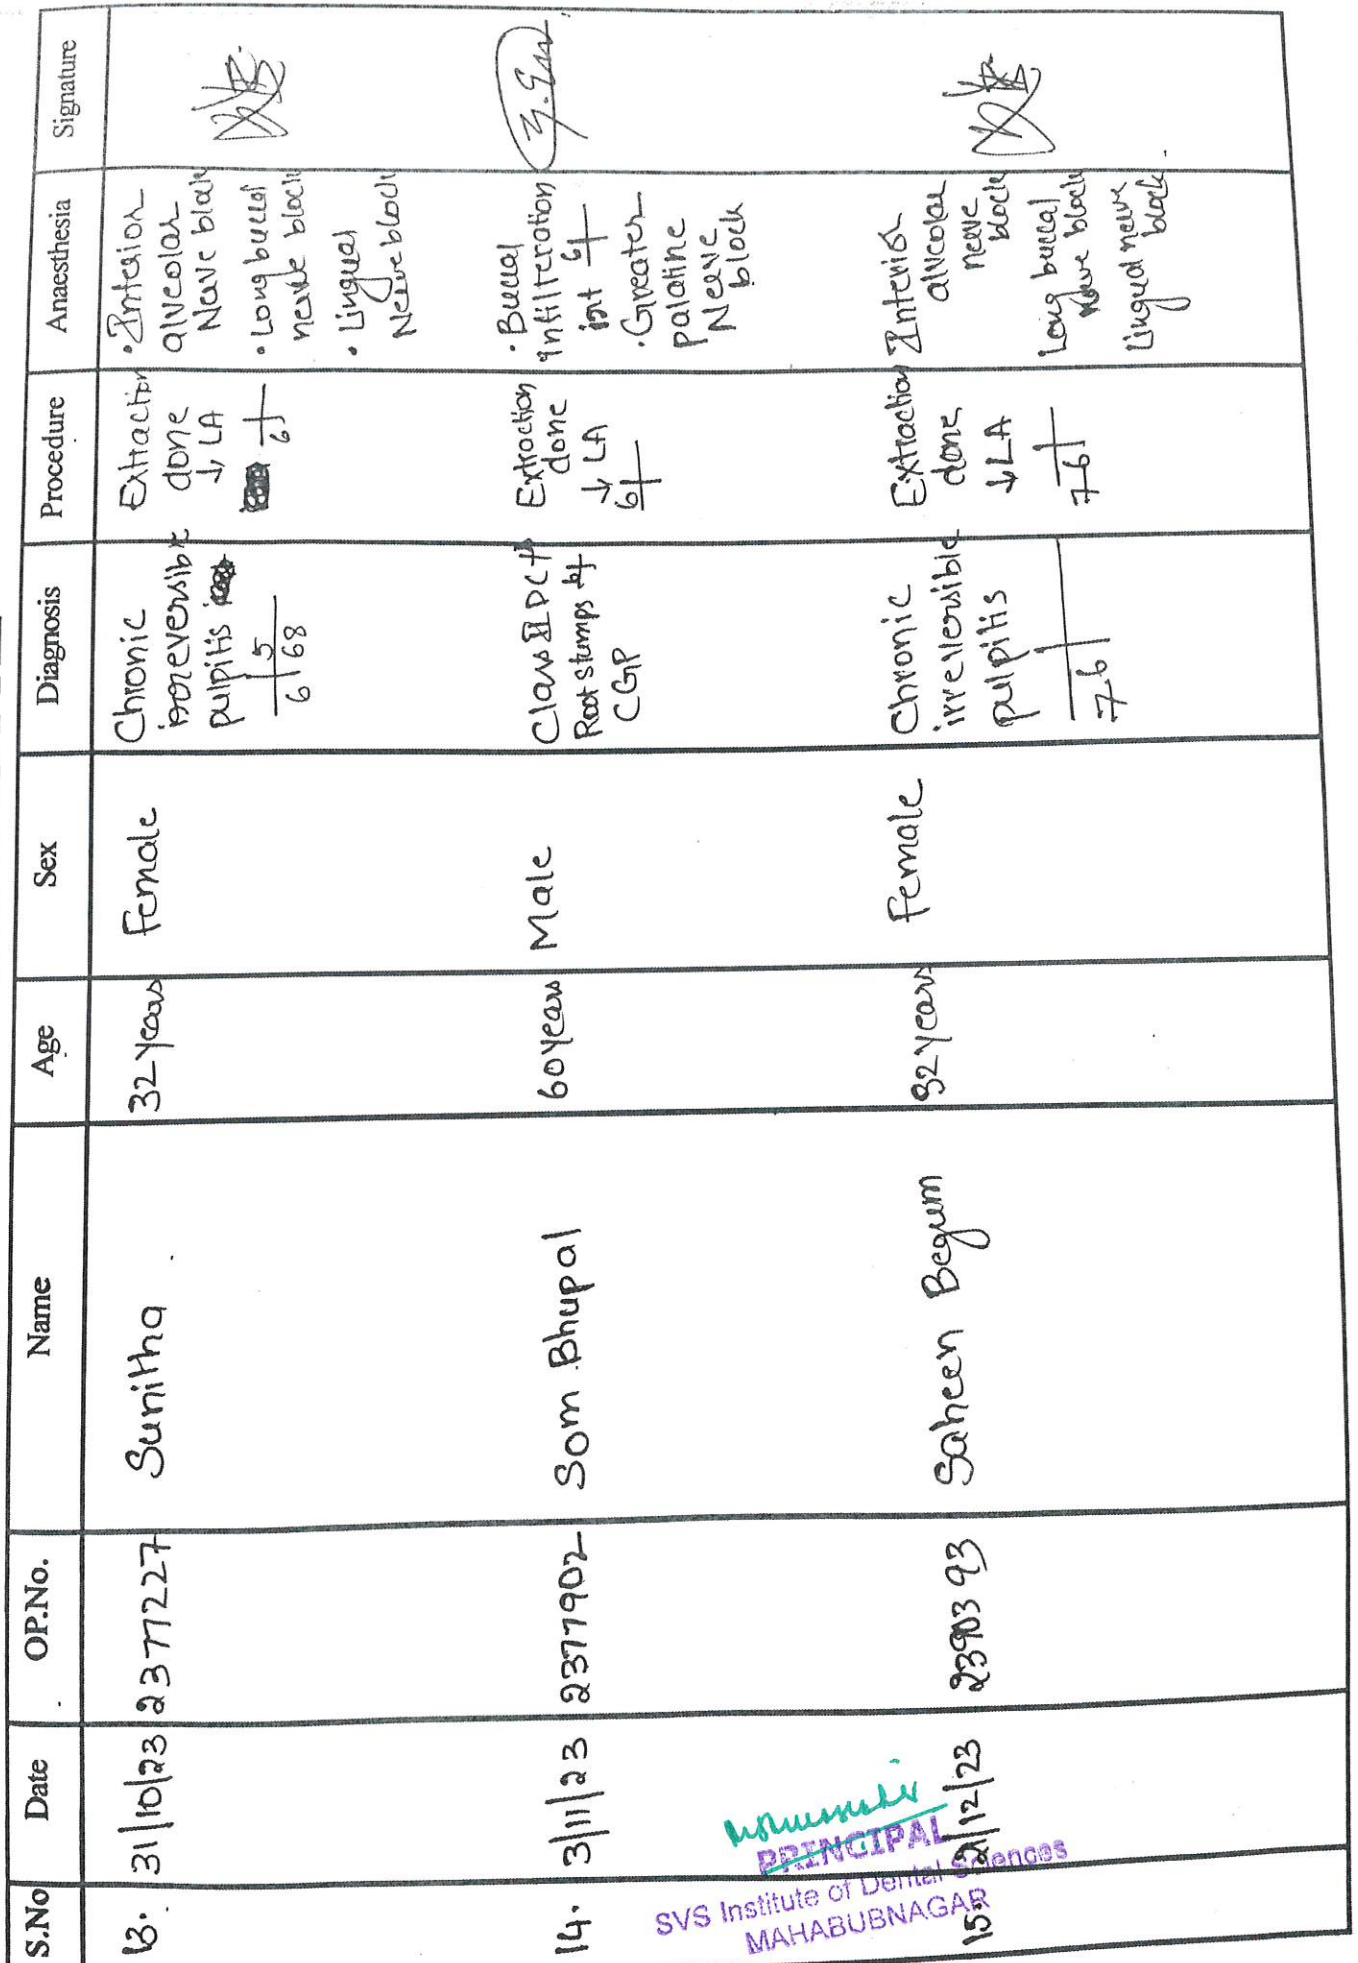 S.No Date OP.No. Name Age Sex Diagnosis Procedure Anaesthesia Signature
13. 31/10/23 2377227 Sunitha 32 years Female
Chronic
irreversible
pulpitis
5
6 68
Extraction
done
↓ LA
6
• Inferior
alveolar
Nerve block
• Long buccal
nerve block
• Lingual
Nerve block
14. 3/11/23 2377902 Som Bhupal 60 years Male
Class II DC +
Root stumps
CGP
Extraction
done
↓ LA
6
• Buccal
infilteration
6
• Greater
palatine
Nerve
block
15. 23903 93 Saheen Begum 32 years Female
Chronic
irreversible
pulpitis
76
Extraction
done
↓ LA
76
Inferior
alveolar
nerve
block
Long buccal
nerve block
Lingual nerve
block.
PRINCIPAL
SVS Institute of Dental Sciences
MAHABUBNAGAR